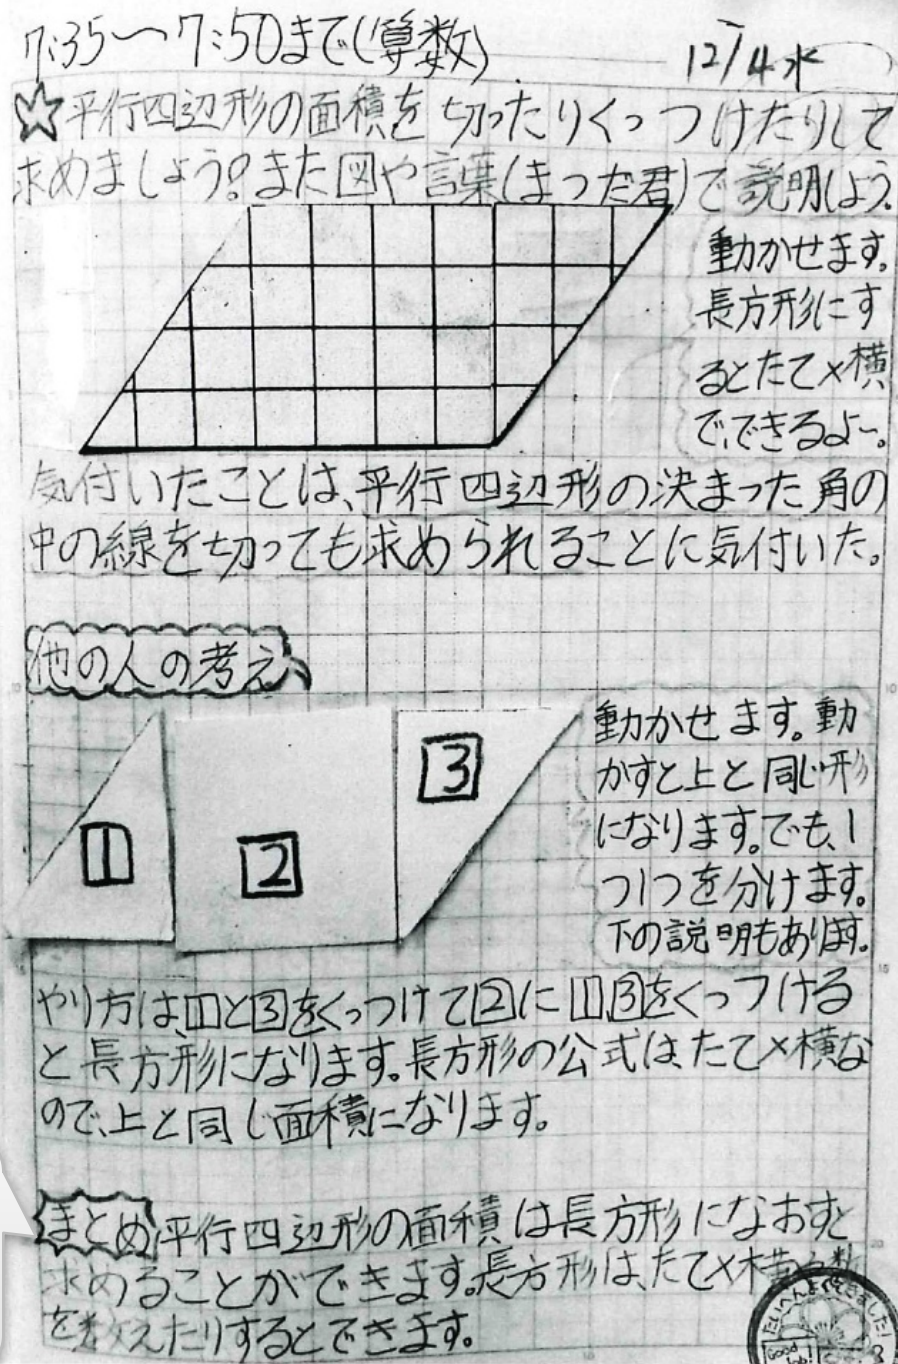 7:35〜7:50まで(算数)
12/4水
☆平行四辺形の面積を切ったりくっつけたりして
求めましょう!また図や言葉(まつだ君)で説明しよう。
動かせます。
長方形にす
るとたて×横
で、できるよー。
気付いたことは、平行四辺形の決まった角の
中の線を切っても求められることに気付いた。
他の人の考え
1
2
3
動かせます。動
かすと上と同じ形
になります。でも、1
つ1つを分けます。
下の説明もあります。
やり方は、①と③をくっつけて②に①③をくっつける
と長方形になります。長方形の公式は、たて×横な
ので、上と同じ面積になります。
まとめ 平行四辺形の面積は長方形になおすと
求めることができます。長方形は、たて×横の数
を数えたりするとできます。
たいへんよくできました!
Good